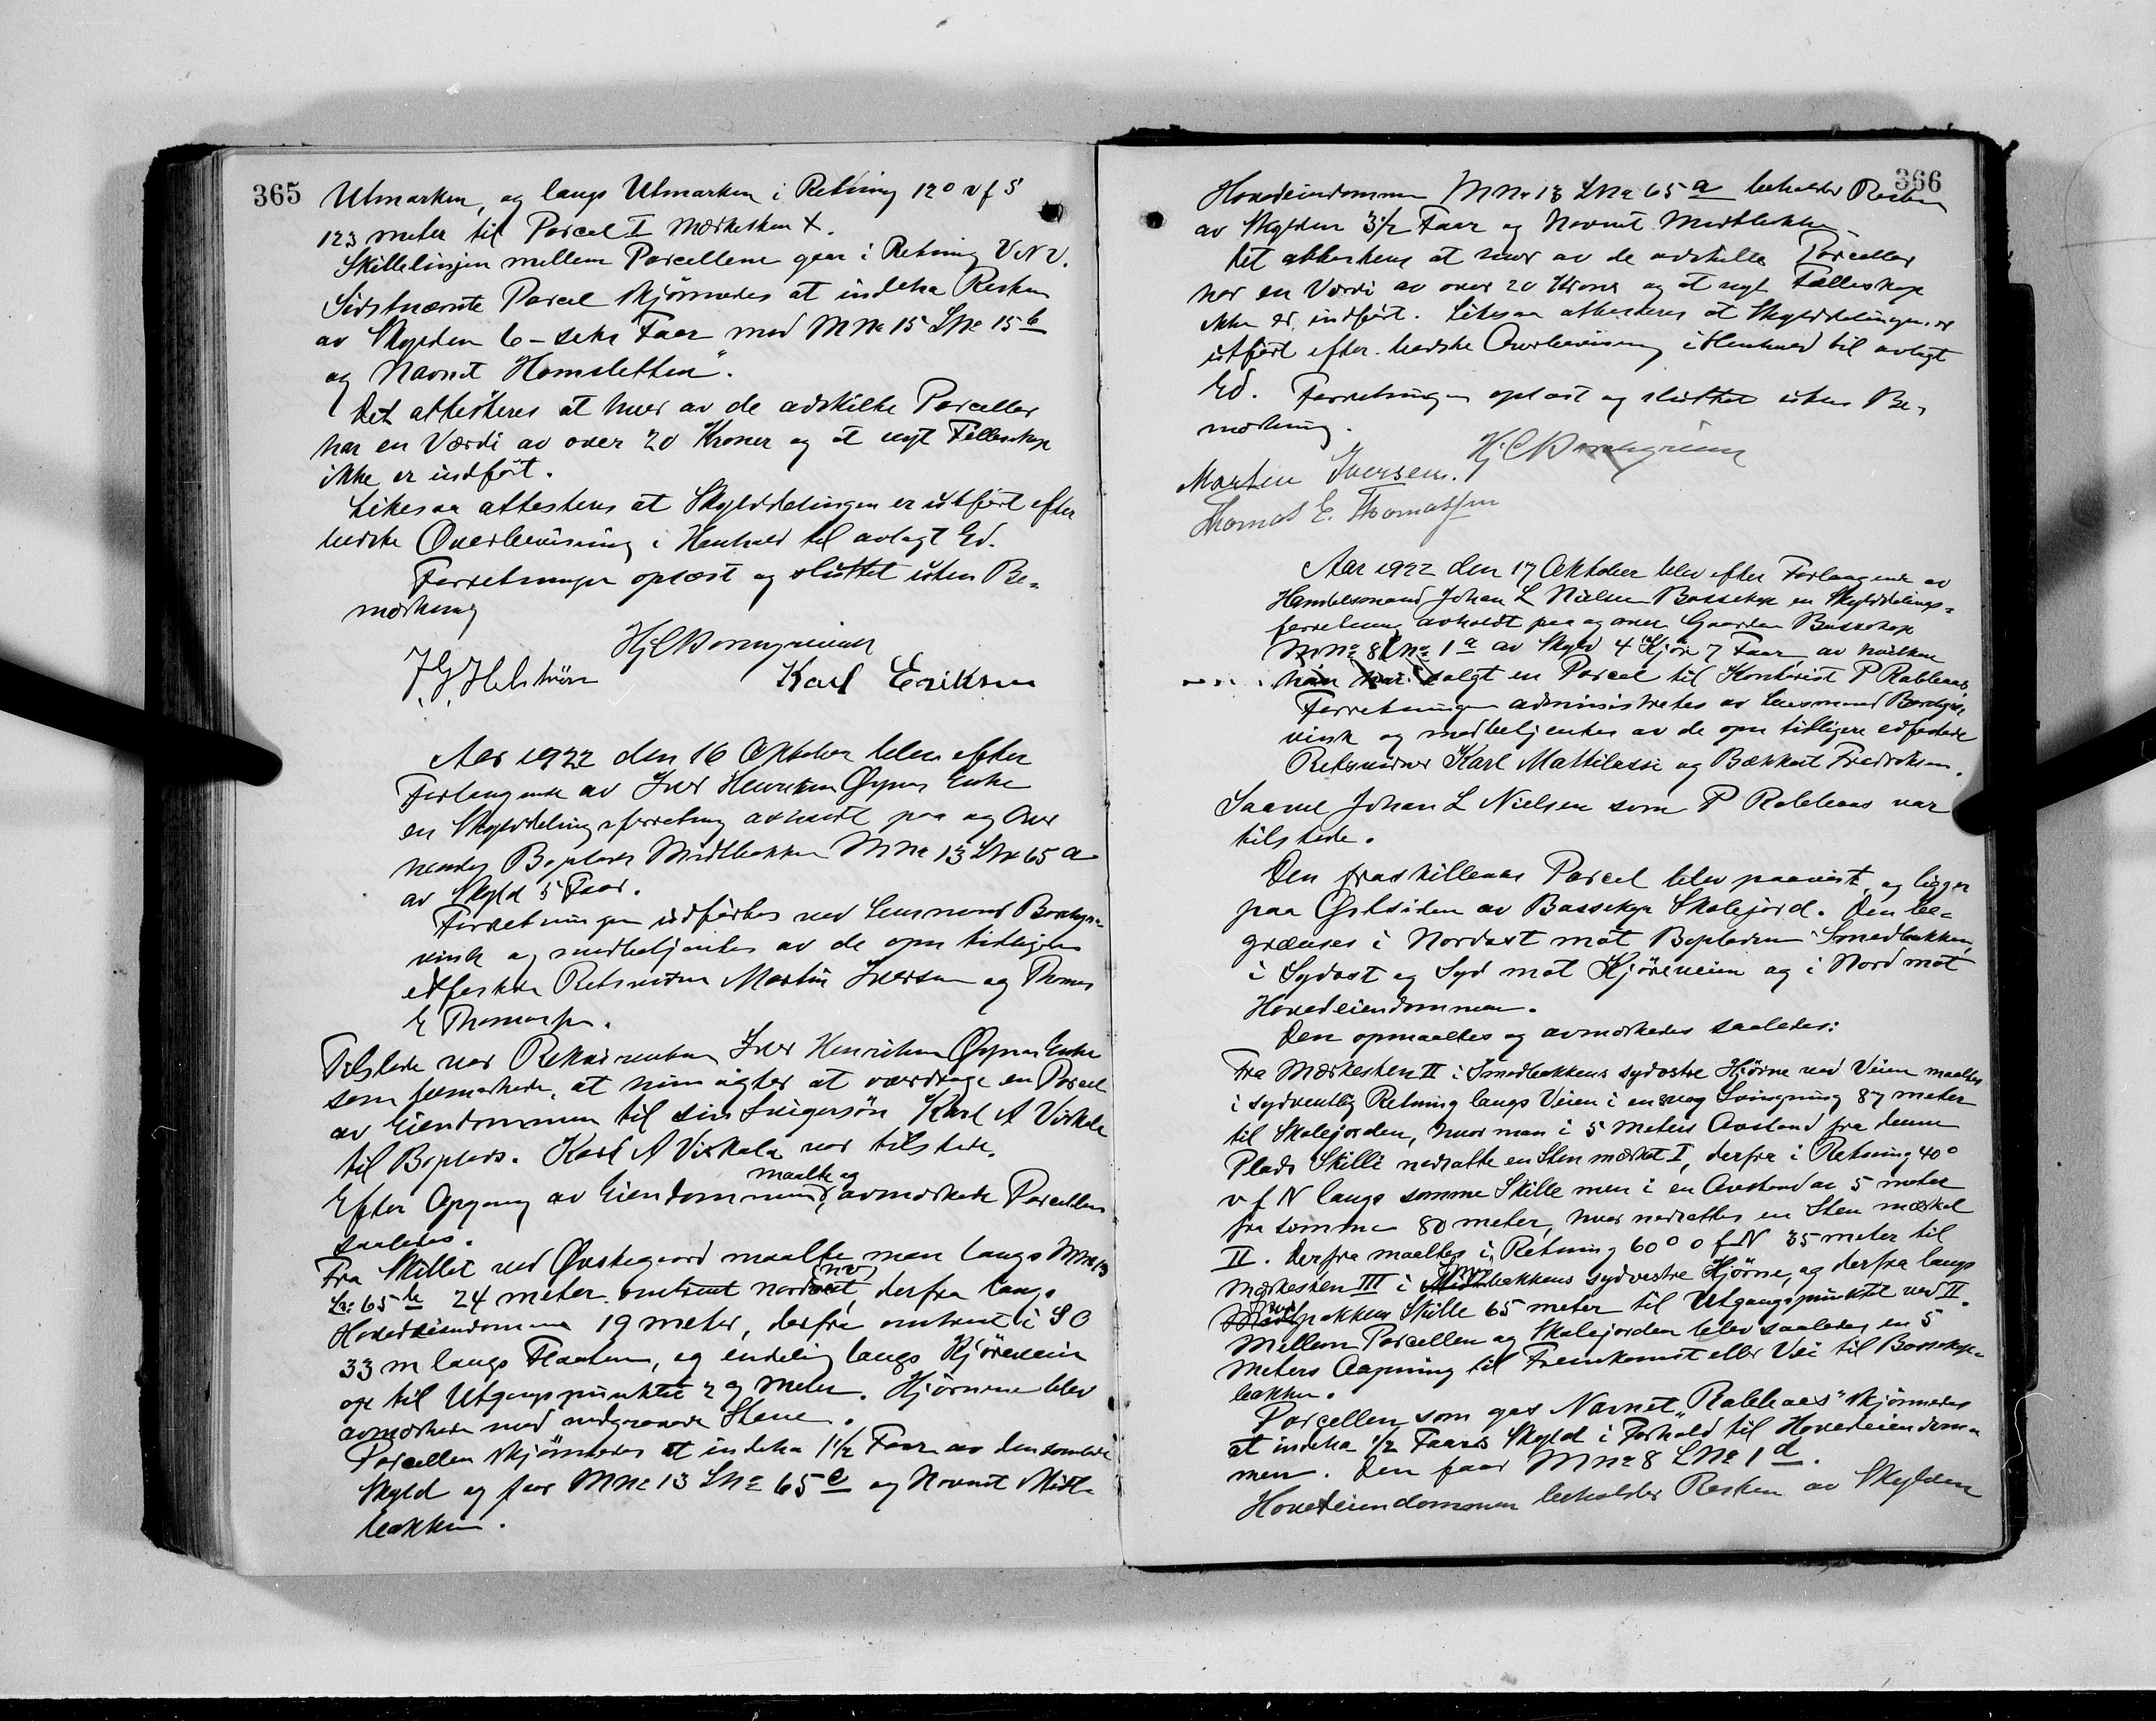 365
Utmarken, og langs Utmarken i Retning 12° v f S
123 meter til Parcel I Mærkesten X.
Skillelinjen mellem Parcellene gaar i Retning VNV.
Sidstnævnte Parcel skjönnedes at indeha Resten
av Skylden 6 - seks Faar med M No 15 L No 15 b
og Navnet Homsletten".
Det attesteres at hver av de adskilte Parceller
har en Værdi av over 20 Kroner og at nyt Fellesskap
ikke er indfört.
Likesaa attesteres at Skylddelingen er utfört efter
bedste Overbevisning i Henhold til avlagt Ed.
Forretningen oplæst og sluttet uten Be-
mærkning
Karl Eriksen
Aar 1922 den 16 Oktober blev efter
Forlangende av Iver Henriksen Enke
en Skylddelingsforretning avholdt paa og over
hendes Boplads Midtbakken M No 13 L No 65 a
av Skyld 5 Faar.
Forretningen utförtes ved Lensmand Borchgre-
vink og medbetjentes av de opn tidligere
edfestede Retsvidner Martin Iversen og Thomas
E Thomassen.
Tilstede var Rekvirenten Iver Henriksen Enke
som bemærkede, at hun agter at overdrage en Parcel
av Eiendommen til sin Svigersön Karl A Viskala
til Boplads. Karl A Viskala var tilstede.
maalte og
Efter Opgang av Eiendommen avmærkede Parcellen
saaledes.
Fra Skillet ved maalte man langs M No 13
L No 65 b 24 meter omtrent nord nv, derfra langs
Hovedeiendommen 19 meter, derfra omtrent i SO
33 m langs Flaaten, og endelig langs Kjöreveien
op til Utgangspunktet 29 meter. Hjörnerne blev
avmærkede med nedgravede Stene.
Parcellen skjönnedes at indeha 1½ Faar av den samlede
Skyld og faar M No 13 L No 65 e og Navnet Midt-
bakken.
366
Hovedeiendommen M No 13 L No 65 a beholder Resten
av Skylden 3½ Faar og Navnet Midtbakken
Det attesteres at hver av de adskilte Parceller
har en Værdi av over 20 Kroner og at nyt Fælleskap
ikke er indfört. Likesaa attesteres at Skylddelingen er
utfört efter bedste Overbevisning i Henhold til avlagt
Ed. Forretningen oplæst og sluttet uten Be-
mærkning.
Martin Iversen.
Thomas E. Thomassen
Aar 1922 den 17 Oktober blev efter Forlangende av
Handelsmand Johan L Nielsen Bossekop en Skylddelings-
forretning avholdt paa og over Gaarden Bossekop
M No 8 L No 1 a av Skyld 4 Kjör 7 Faar, av hvilken
han har solgt en Parcel til Kontorist P Rabbaas.
Forretningen administreres av Lensmand Borchgre-
vink og medbetjentes av de opn tidligere edfestede
Retsvidner Karl Mattilassi og Bækkart Fredriksen.
Saavel Johan L Nielsen som P Rabbaas var
tilstede.
Den fraskillende Parcel blev paavist, og ligger
paa Østsiden av Bossekop Skolejord. Den be-
grænses i Nordost mot Bopladsen Smedbakken,
i Sydost og Syd mot Kjöreveien og i Nord mot
Hovedeiendommen.
Den opmaaltes og avmærkedes saaledes:
Fra Mærkesten II i Smedbakkens sydostre Hjörne ved Veien maaltes
i sydvestlig Retning langs Veien i en svag Svingning 87 meter
til Skolejorden, hvor man i 5 meters Avstand fra denne
Plads Skille nedsatte en Sten mærket I, derfra i Retning 40°
v f N langs samme Skille men i en Avstand av 5 meter
fra samme 80 meter, hvor nedsattes en Sten mærket
II. Derfra maaltes i Retning 60° o f N 35 meter til
Mærkesten III i Smedbakkens sydvestre Hjörne, og derfra langs
Smedbakkens Skille 65 meter til Utgangspunktet ved II.
Mellem Parcellen og Skolejorden blev saaledes en 5
Meters Aapning til Fremkomst eller Vei til Bossekop-
bakken.
Parcellen som gas Navnet "Rabbaas" skjönnedes
at indeha ½ Faars Skyld i Forhold til Hovedeiendom-
men. Den faar M No 8 L No 1 d.
Hovedeiendommen beholder Resten av Skylden